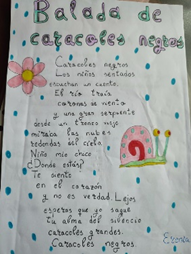 Balada de
caracoles negros
Caracoles negros
Los niños sentados
escuchan un cuento.
El río traía
coronas de viento
y una gran serpiente
desde un tronco viejo
miraba las nubes
redondas del cielo
Niño mio chico
¿Donde estás?
Te siento
en el corazón
y no es verdad. Lejos
esperas que yo saque
tu alma del silencio
caracoles grandes.
Caracoles negros